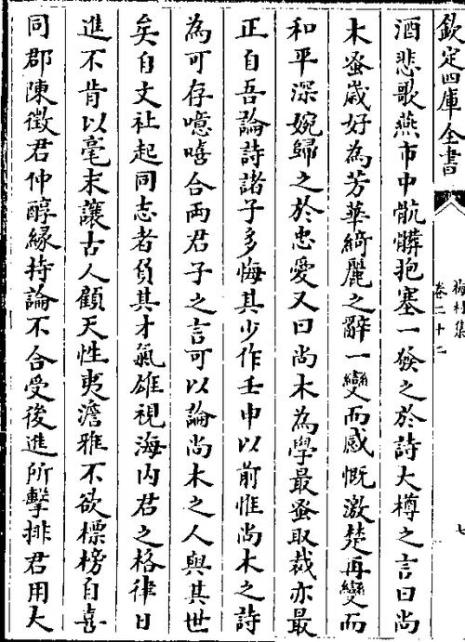 欽定四庫全書
梅村集
卷二十二
七
酒悲歌燕市中骯髒抱塞一發之於詩大樽之言曰尚
木蚤歲好為芳華綺麗之辭一變而感慨激楚再變而
和平深婉歸之於忠愛又曰尚木為學最蚤取裁亦最
正自吾論詩諸子多悔其少作壬申以前惟尚木之詩
為可存噫嘻合兩君子之言可以論尚木之人與其世
矣自文社起同志者負其才氣雄視海內君之格律日
進不肯以毫末讓古人顧天性夷澹雅不欲標榜自喜
同郡陳徵君仲醇緣持論不合受後進所擊排君用大